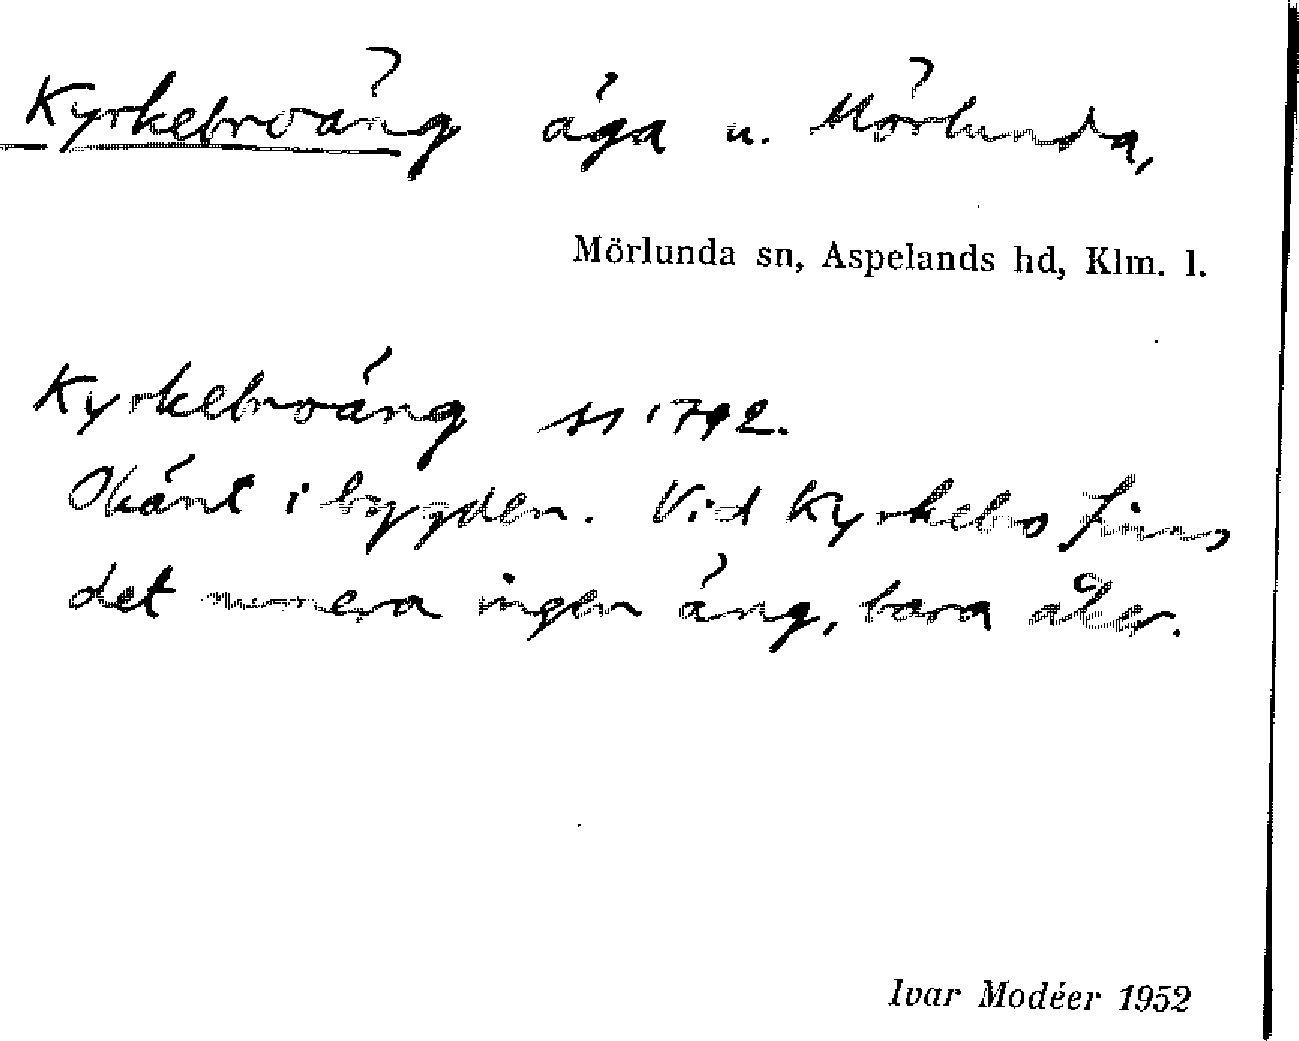 Kyrkebroäng äga u. Mörlunda,
Mörlunda sn, Aspelands hd, Klm. l.
Kyrkebroäng 1792.
Okänt i bygden. Vid Kyrkebro finns
det numera ingen äng, bara åker.
Ivar Modéer 1952